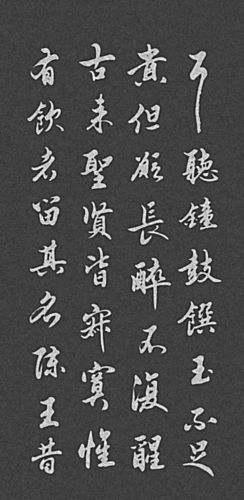 耳聽鐘鼓饌玉不足
貴但願長醉不復醒
古来聖賢皆寂寞惟
有飲者留其名陳王昔